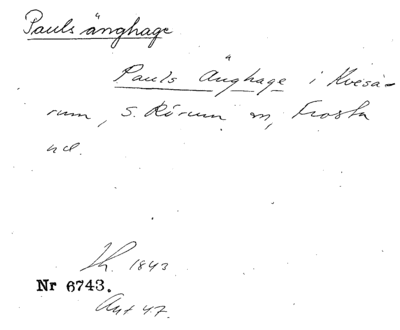 Pauls änghage
Pauls Änghage i Kvesa-
rum, S. Rörum sn, Frosta
hd.
Lh. 1843
Nr 6743.
Avt 47.